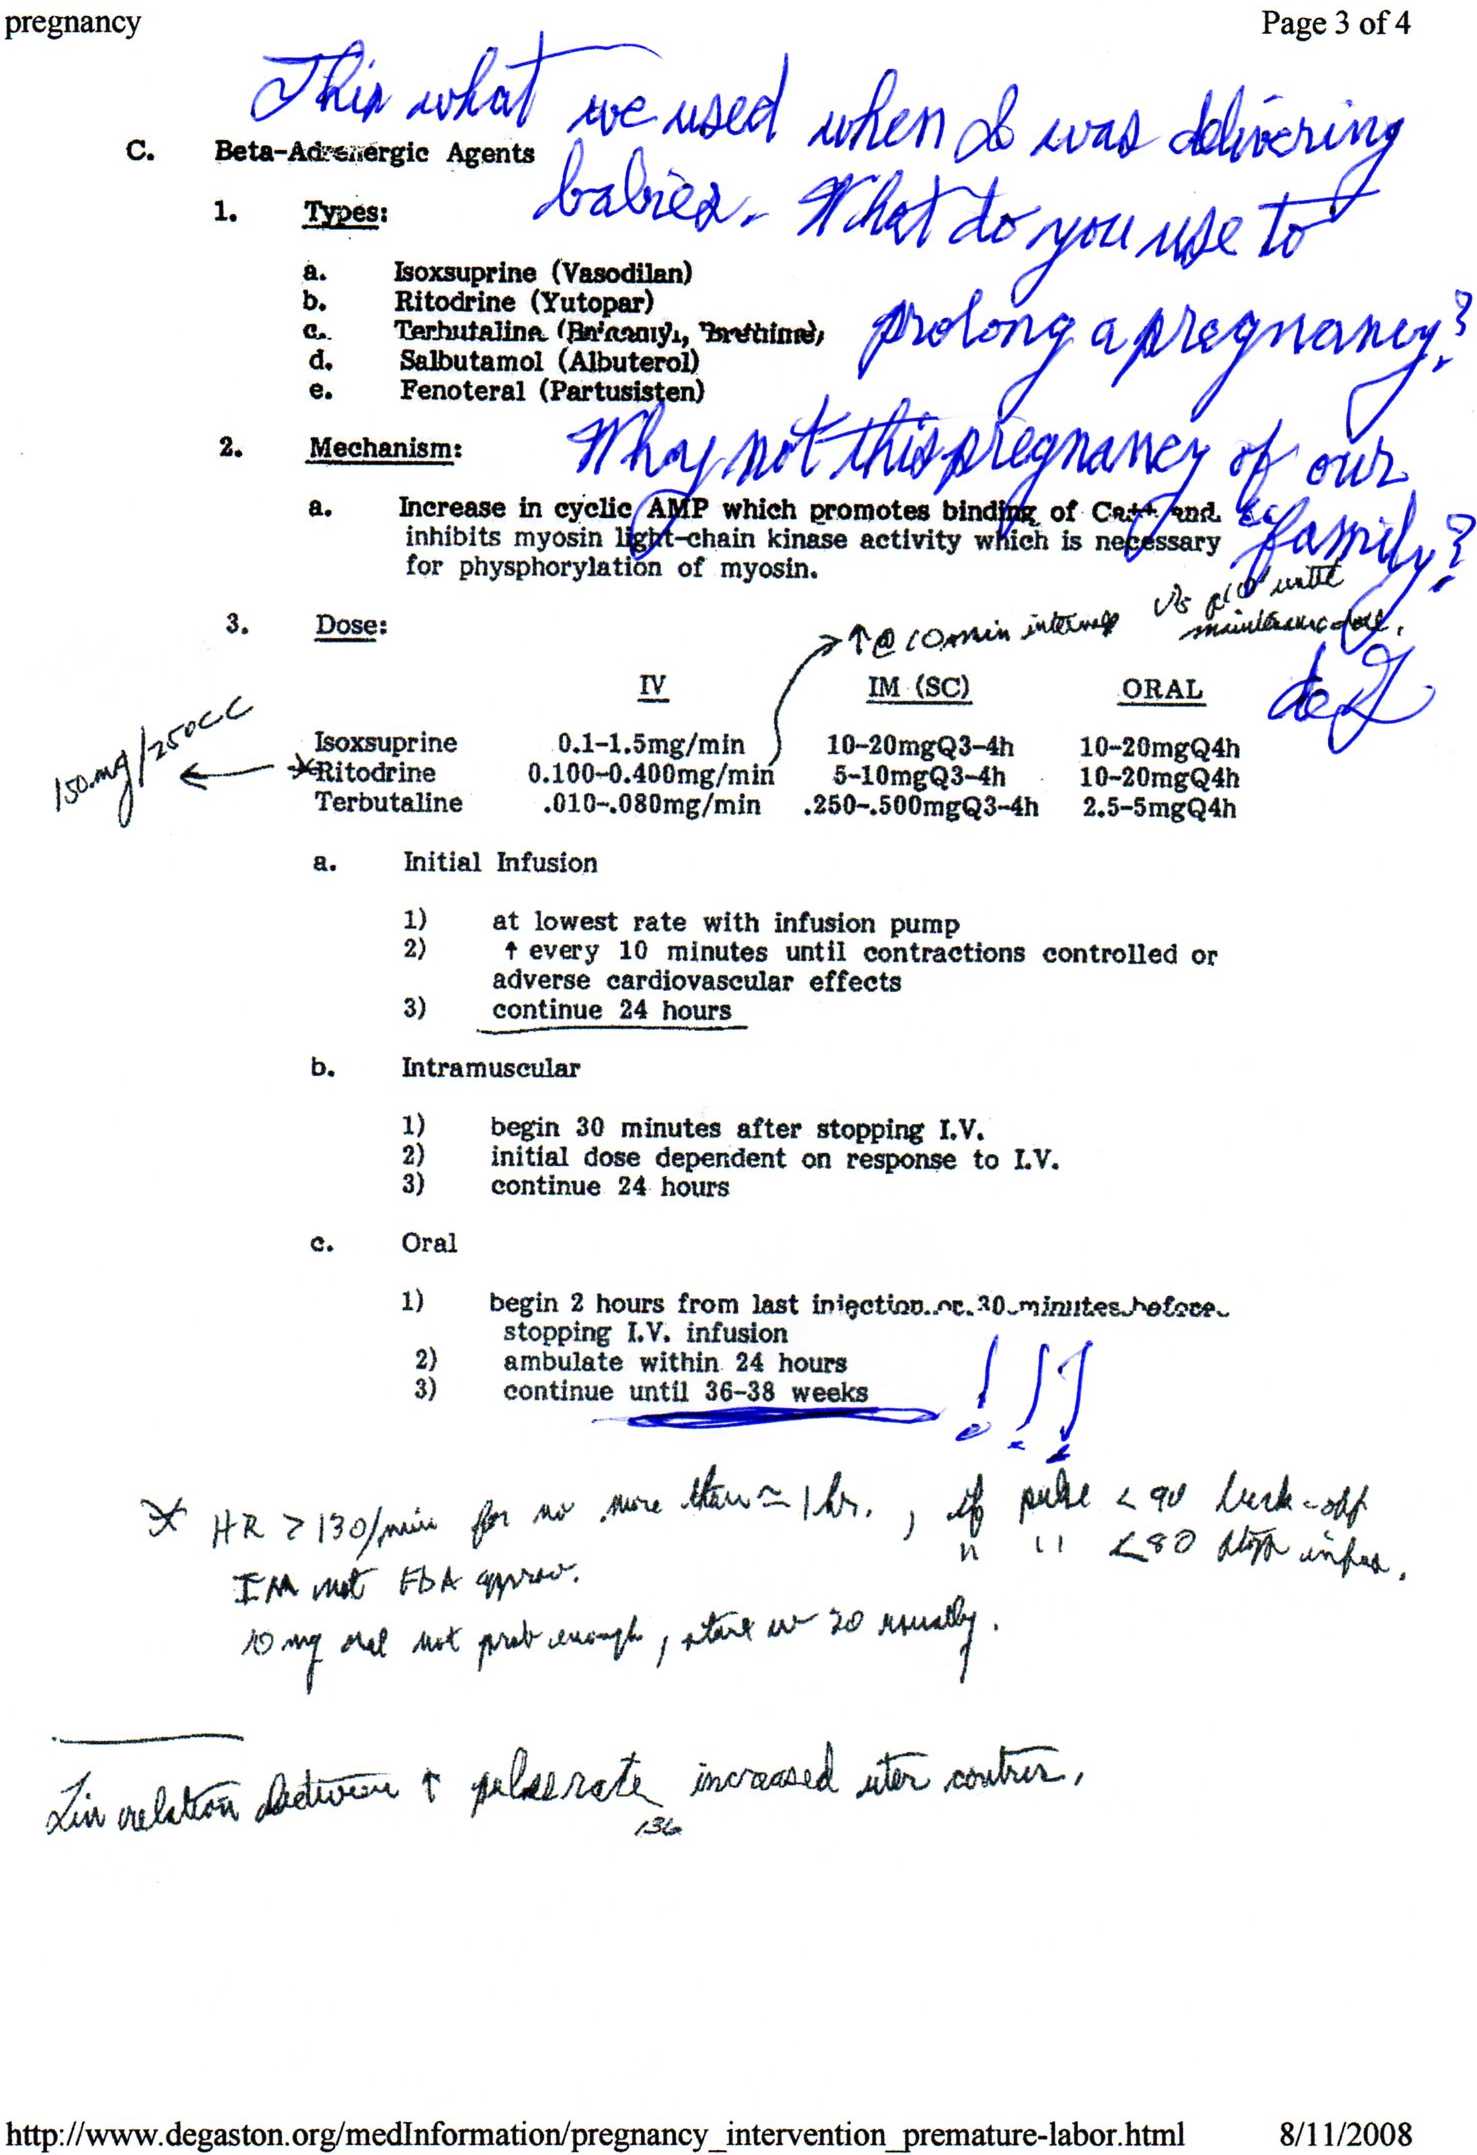 pregnancy Page 3 of 4
This what we used when I was delivering
babies. What do you use to
prolong a pregnancy?
Why not this pregnancy of our
family?
deG
C. Beta-Adrenergic Agents
1. Types:
a. Isoxsuprine (Vasodilan)
b. Ritodrine (Yutopar)
c. Terbutaline (Bricanyl, Brethine)
d. Salbutamol (Albuterol)
e. Fenoteral (Partusisten)
2. Mechanism:
a. Increase in cyclic AMP which promotes binding of Ca++ and
inhibits myosin light-chain kinase activity which is necessary
for physphorylation of myosin.
3. Dose:
↑ @ 10 min intervals until
maintenance dose.
IV IM (SC) ORAL
150mg/250cc
Isoxsuprine 0.1-1.5mg/min 10-20mgQ3-4h 10-20mgQ4h
*Ritodrine 0.100-0.400mg/min 5-10mgQ3-4h 10-20mgQ4h
Terbutaline .010-.080mg/min .250-.500mgQ3-4h 2.5-5mgQ4h
a. Initial Infusion
1) at lowest rate with infusion pump
2) ↑ every 10 minutes until contractions controlled or
adverse cardiovascular effects
3) continue 24 hours
b. Intramuscular
1) begin 30 minutes after stopping I.V.
2) initial dose dependent on response to I.V.
3) continue 24 hours
c. Oral
1) begin 2 hours from last injection or 30 minutes before
stopping I.V. infusion
2) ambulate within 24 hours
3) continue until 36-38 weeks !!!
* HR > 130/min for no more than ≃ 1 hr., if pulse < 90 back-off
" " < 80 stop infus.
IM not FDA approv.
10 mg oral not prob enough, start w 20 usually.
Lin relation between ↑ pulse rate increased uter contrx.
136
http://www.degaston.org/medInformation/pregnancy_intervention_premature-labor.html 8/11/2008